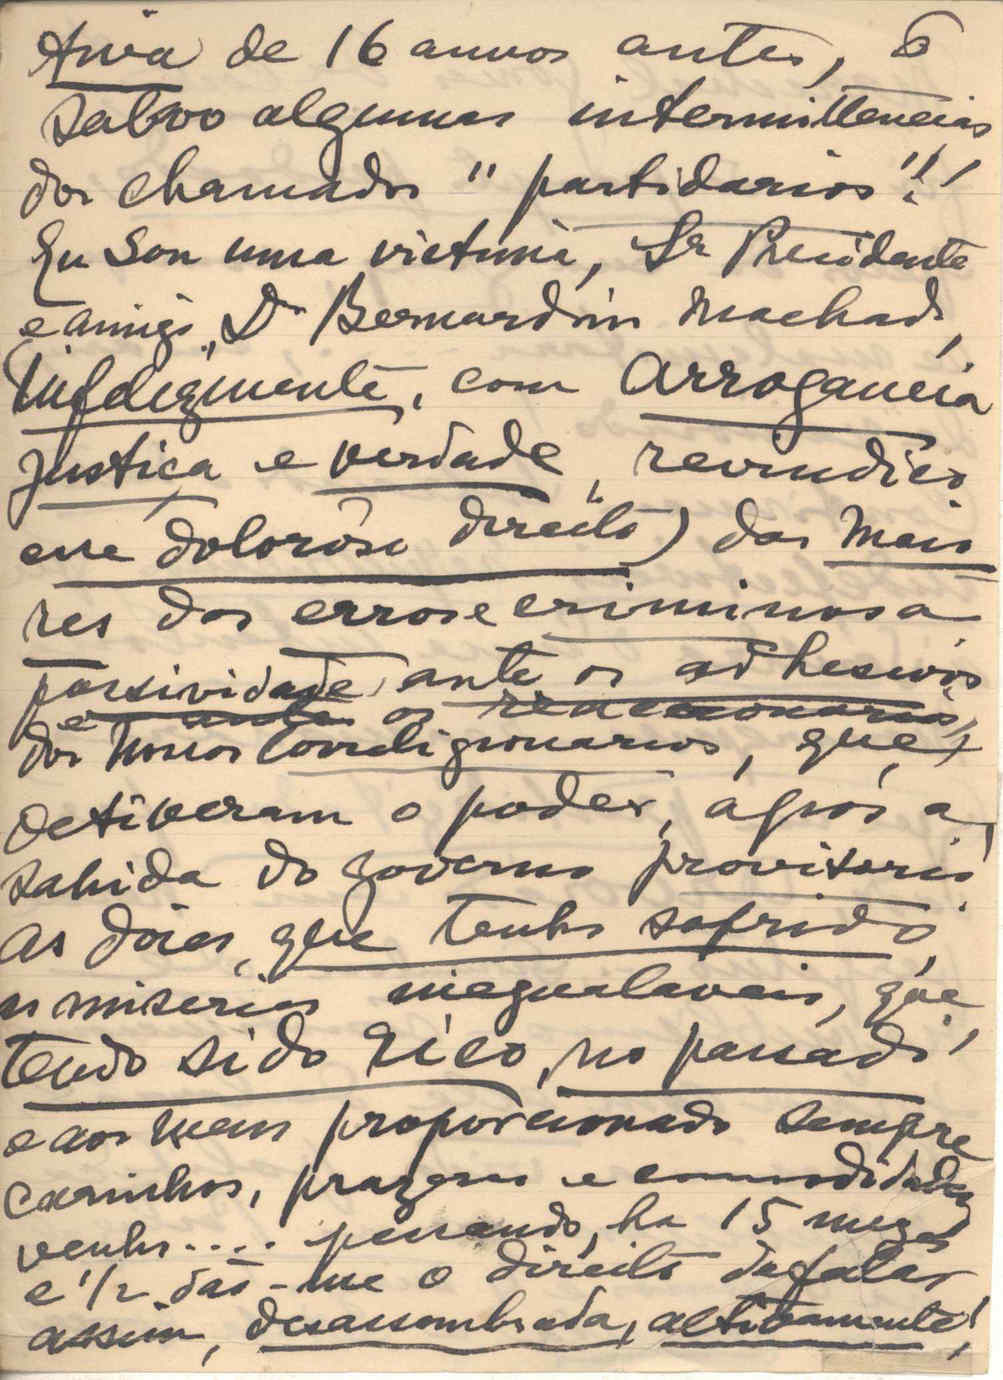 de 16 annos antes, 6
salvo algumas intermittencias
dos chamados "partidarios"!!
Eu sou uma victima, Sr Presidente
e amigo, Dr Bernardino Machado,
Infelizmente, com arrogancia
justiça e verdade, reivindico
esse doloroso direito) dos maio
res dos erros e criminosa
passividade ante os adhesivos
e ante os reaccionarios,
dos nossos Correligionarios, que,
detiveram o poder, após a
sahida do governo provisorio
As dôres, que tenho sofrido,
as miserias inegualaveis, que,
tendo sido rico, no passado,
e aos meus proporcionado sempre
carinhos, prazeres e commodidades
venho.... penando, ha 15 mezes
e 1/2 dão-me o direito de falar
assim, desassombrada, altivamente!